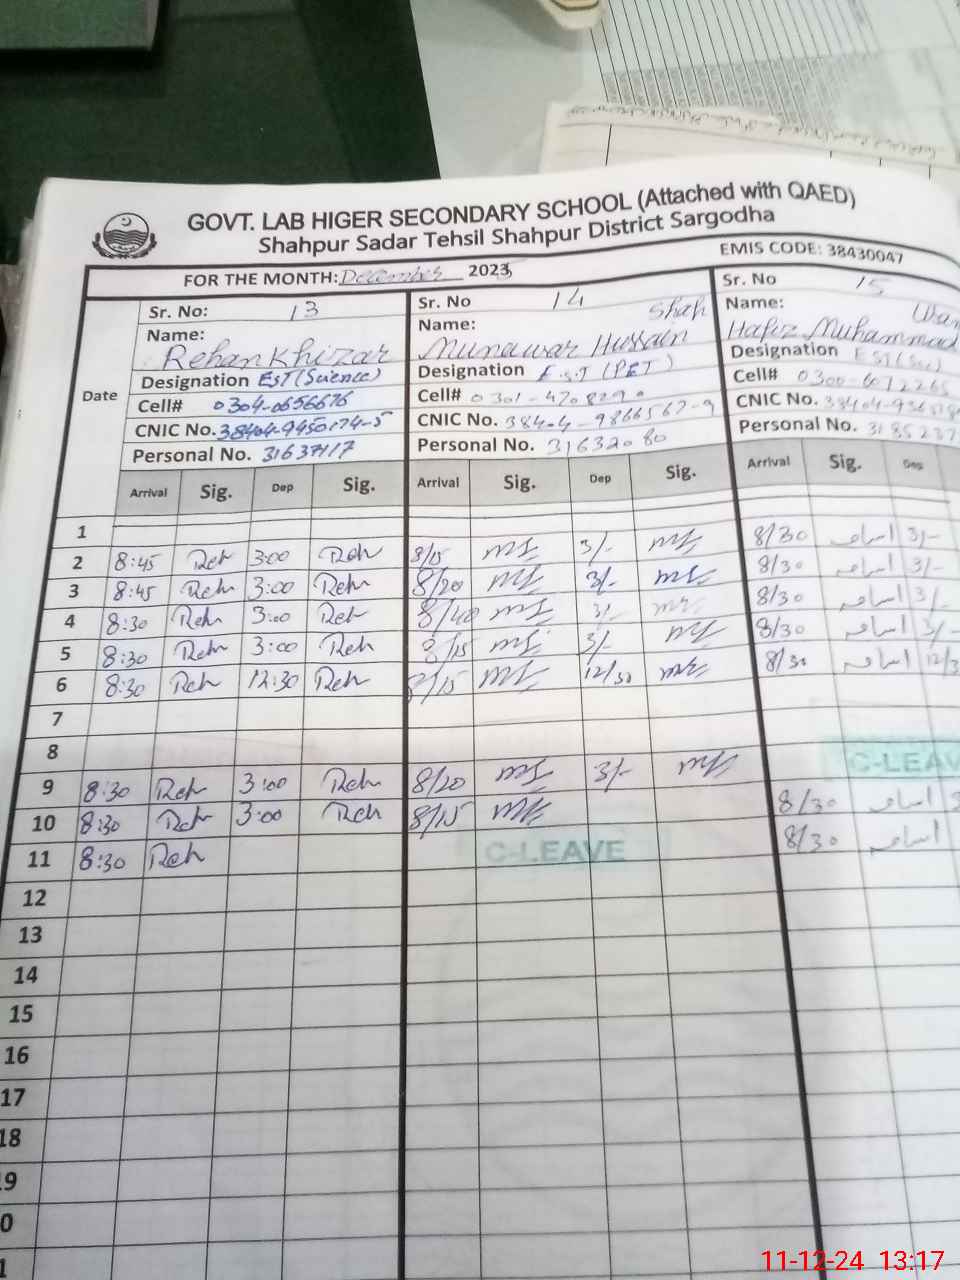 GOVT. LAB HIGER SECONDARY SCHOOL (Attached with QAED)
Shahpur Sadar Tehsil Shahpur District Sargodha
EMIS CODE: 38430047
FOR THE MONTH: December 2023
Date
Sr. No: 13
Name:
Rehan Khizar
Designation EST (Science)
Cell# 0304-0656676
CNIC No. 38404-9450174-5
Personal No. 31637117
Sr. No 14
Name: Shah
Munawar Hussain
Designation E.S.T (PET)
Cell# 0301-4708290
CNIC No. 38404-9866567-9
Personal No. 31632080
Sr. No 15
Name:
Hafiz Muhammad
Designation EST (Sci)
Cell# 0300-6072265
CNIC No. 38404-
Personal No. 3185237
Arrival Sig. Dep Sig. Arrival Sig. Dep Sig. Arrival Sig. Dep
1 8/30 اسامہ 3/-
2 8:45 Reh 3:00 Reh 8/15 3/- 8/30 اسامہ 3/-
3 8:45 Reh 3:00 Reh 8/20 3/- 8/30 اسامہ 3/-
4 8:30 Reh 3:00 Reh 8/40 3/- 8/30 اسامہ 3/-
5 8:30 Reh 3:00 Reh 8/15 3/- 8/30 اسامہ 12/3
6 8:30 Reh 12:30 Reh 8/15 12/30
7
8 C-LEAV
9 8:30 Reh 3:00 Reh 8/20 3/- 8/30 اسامہ 3
10 8:30 Reh 3:00 Reh 8/15 8/30 اسامہ
11 8:30 Reh C-LEAVE
12
13
14
15
16
17
18
9
0
1
11-12-24 13:17